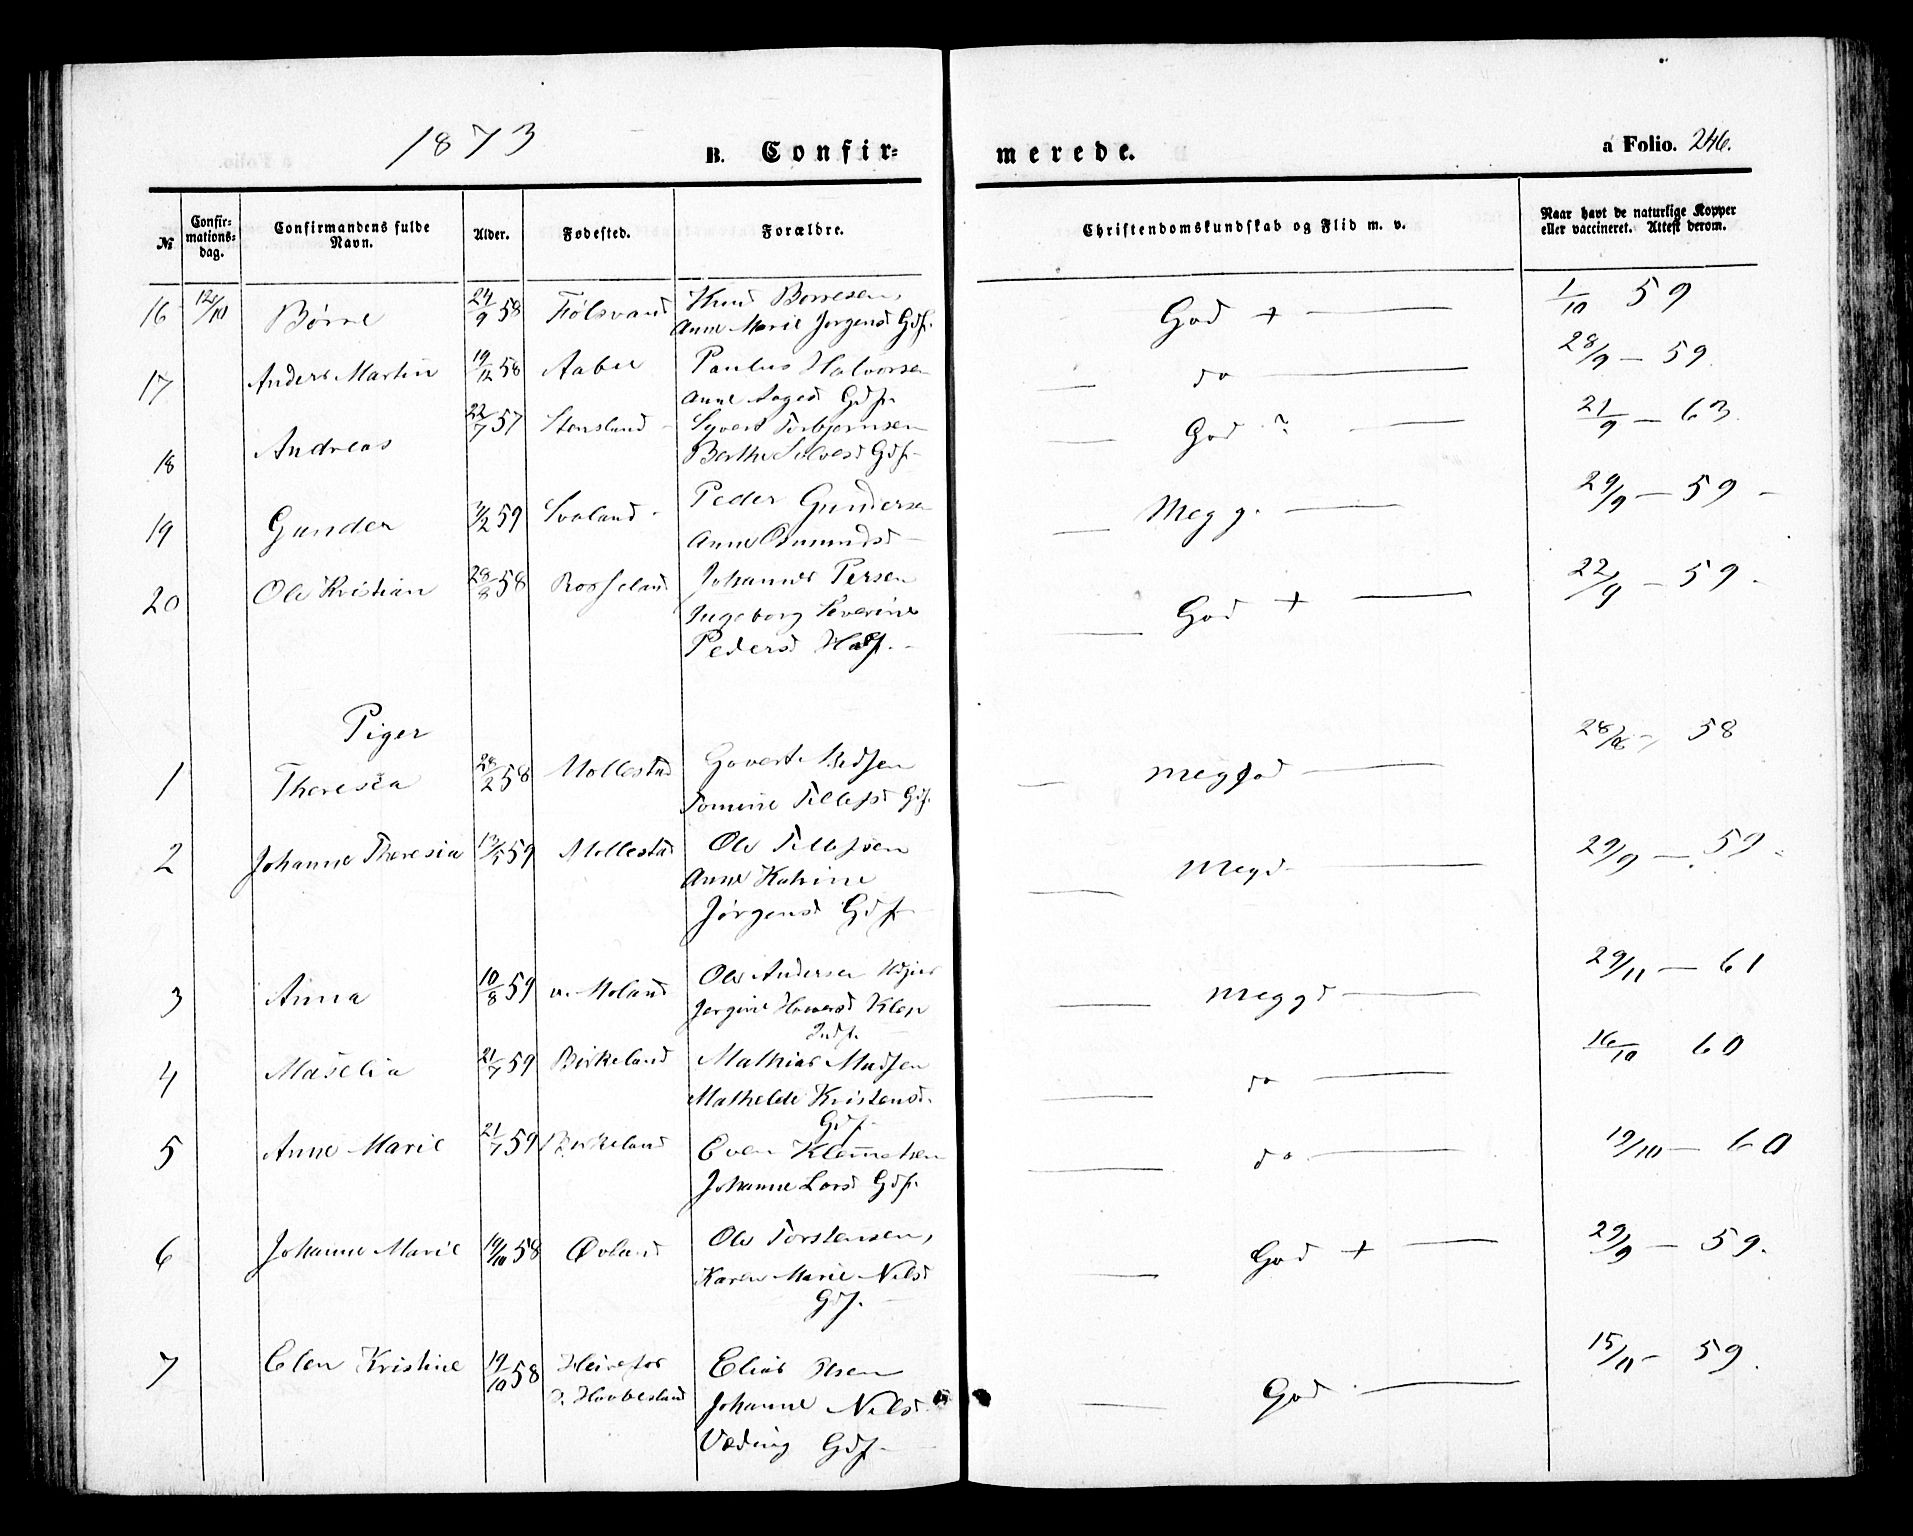 1873
B. Confir=
merede.
a Folio. 246.
№
Confir=
mations=
dag.
Confirmandens fulde
Navn.
Alder.
Fødested.
Forældre.
Christendomskundskab og Flid m. v.
Naar havt de naturlige Kopper
eller vaccineret. Attest derom.
16 12/10 Børre 24/9 58 Følsvand Knud Børresen, God + 1/10 59
Anne Marie Jørgensd Gdf.
17 Anders Martin 19/12 58 Aabel Paulus Halvorsen do 28/9 — 59.
Anne Aagesd Gdf.
18 Andreas 22/7 57 Stensland Syvert Torbjørnsen God 21/9 — 63.
Berthe Gdf.
19 Gunder 2 59 Svaland Peder Gundersen Meg g. 29/9 — 59
Anne Osmundsd
20 Ole Kristian 28/8 58 Rosseland Johannes Persen God + 22/9 — 59
Ingeborg Severine
Pedersd
Piger
1 Theresia 28/2 58 Mollestad Govert Madsen meg god 28 58
Tomine Tellefsd Gdf.
2 Johanne Theresia 13/5 59 Mollestad Ole Tellefsen Megd 29/9 — 59
Anne Katrine
Jörgensd Gdf
3 Anna 10/8 59 v. Moland Ole Andersen meggd 29/11 — 61
Jørgine
Indf.
4 Maselia 21/7 59 Birkeland Mathias Madsen do 16/10 60
Mathilde Kristensd.
Gdf.
5 Anne Marie 21/7 59 Birkeland Even Klemetsen do 19/10 — 60
Johanne Larsd Gdf.
6 Johanne Marie 19/10 58 Øvland Ole Torstensen, God + 29/9 — 59.
Karen Marie Nilsd
Gdf.
7 Elen Kristine 19/10 58 Heirefos Elias Olsen God 15/11 59.
Johanne Nilsd
Væding Gdf